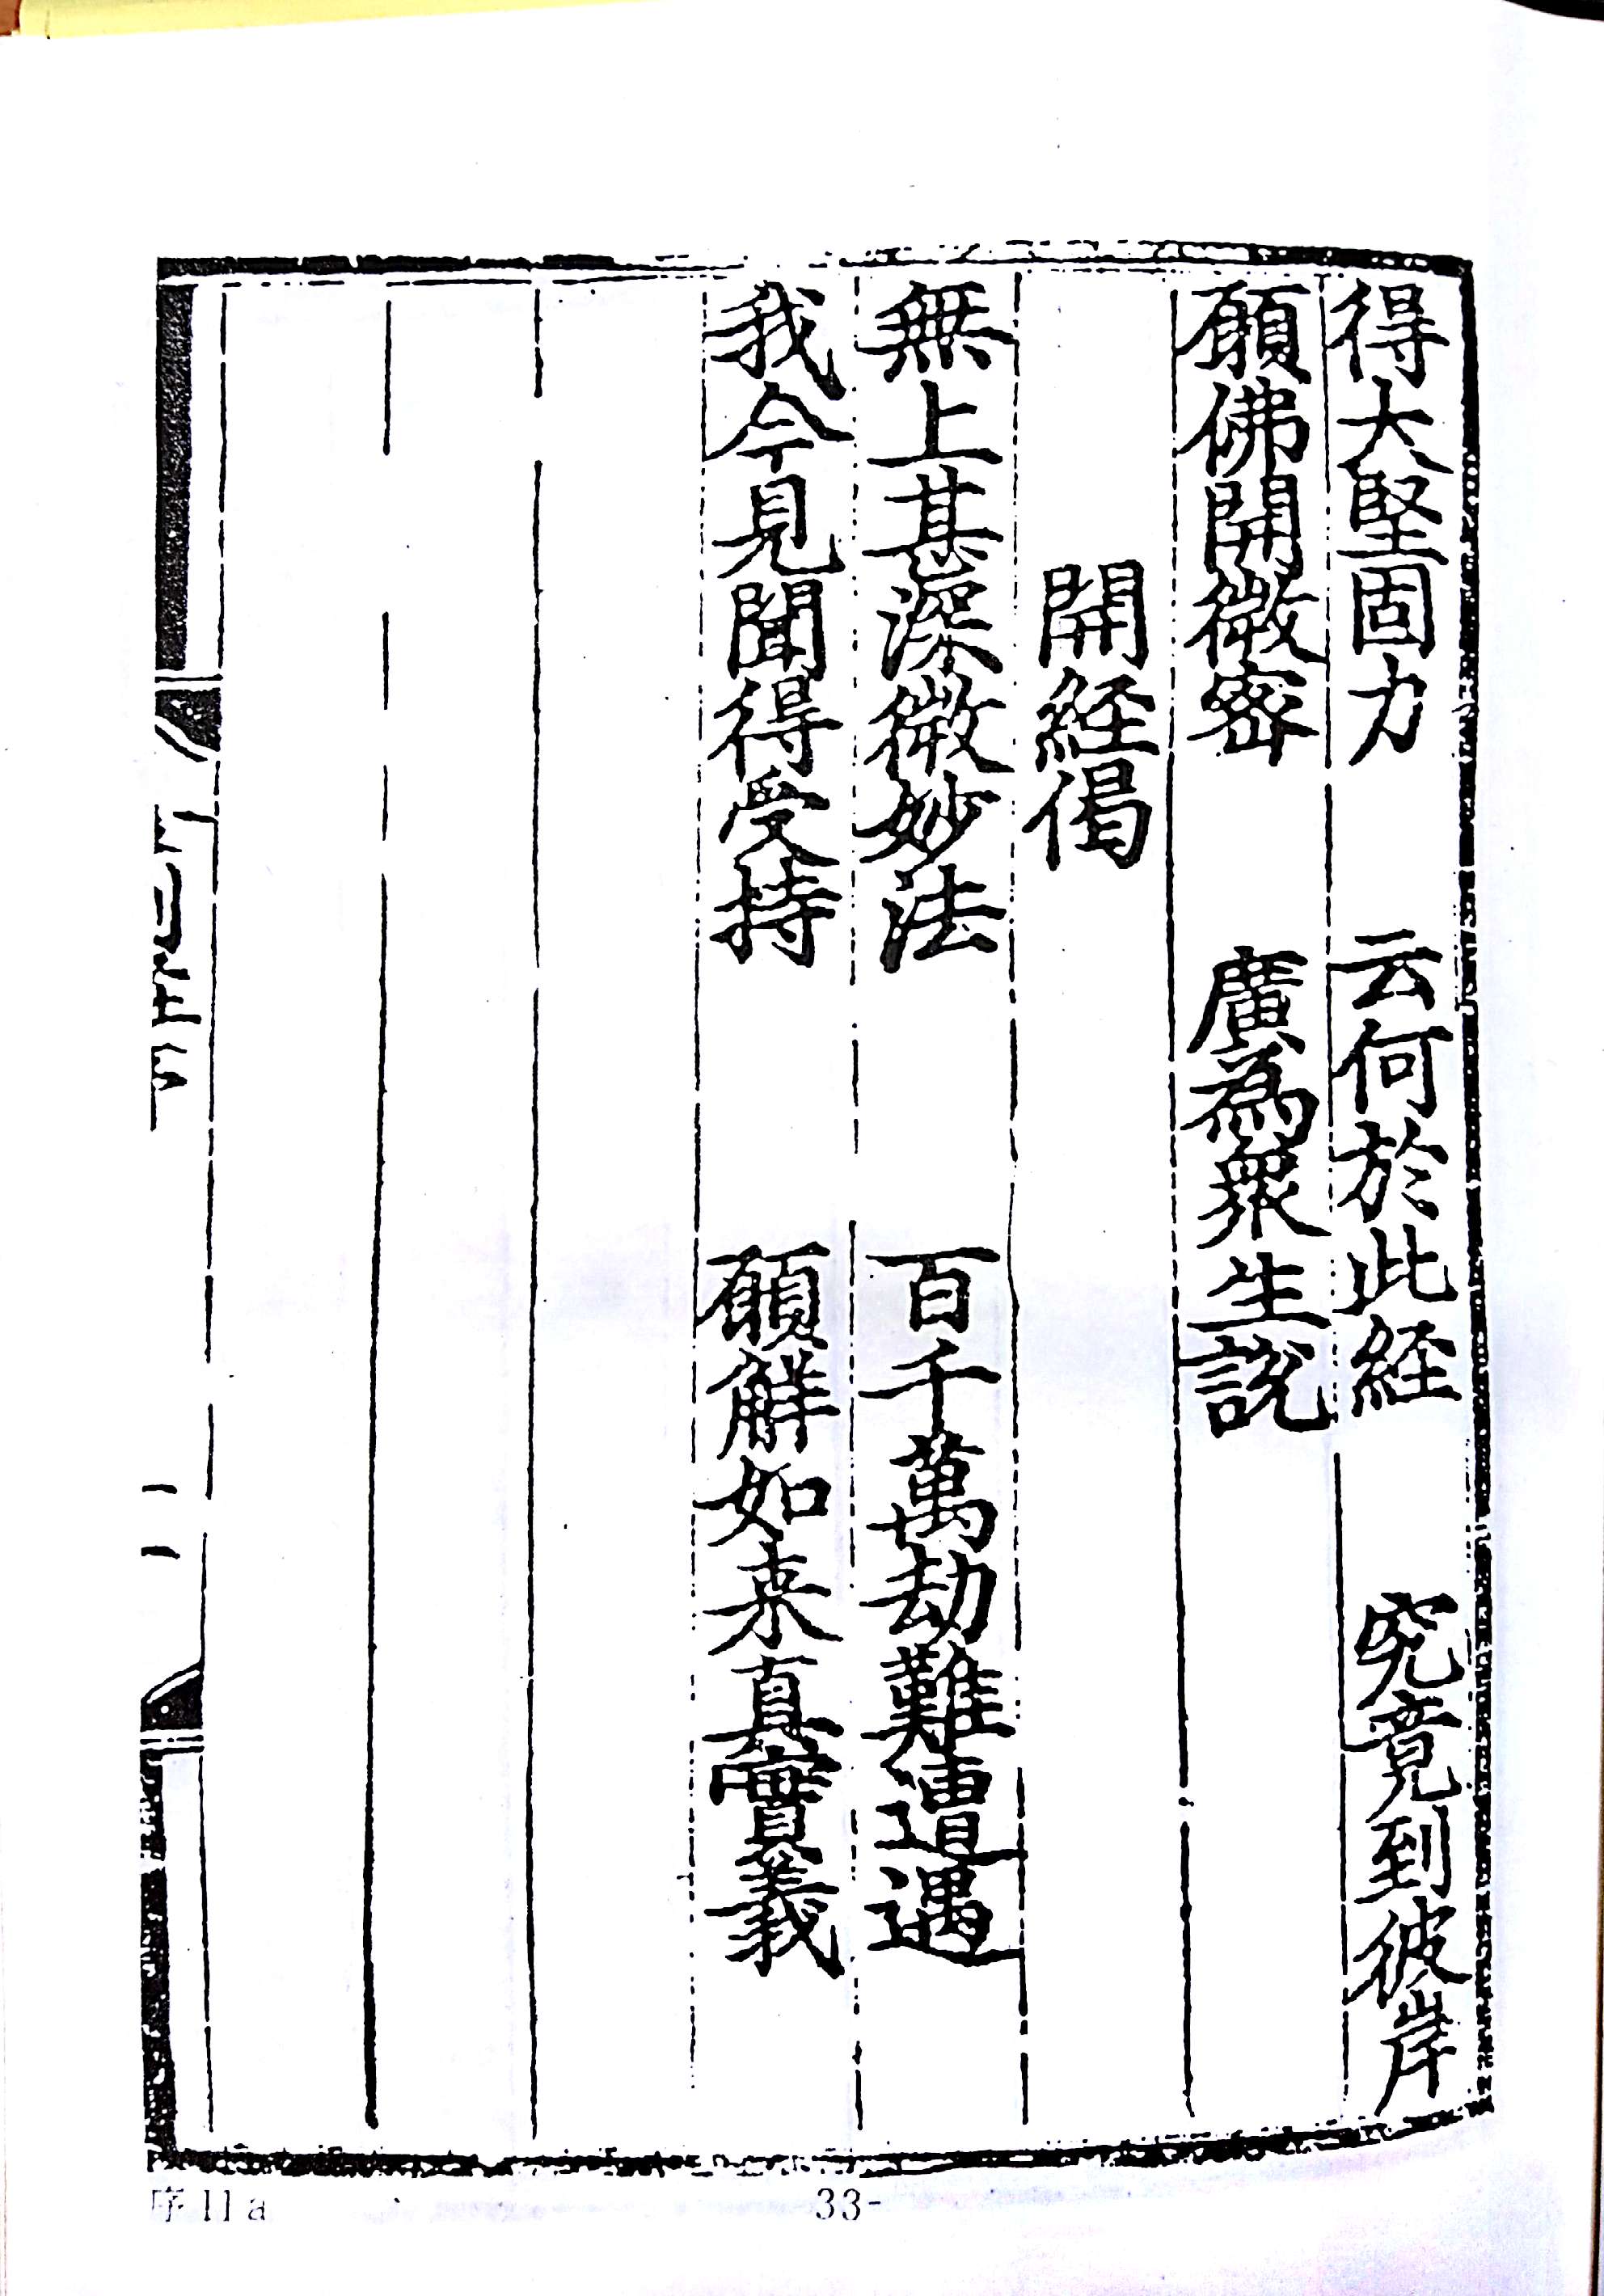 得大堅固力 云何於此経 究竟到彼岸
願佛開微密 廣為衆生說
開経偈
無上甚深微妙法 百千萬劫難遭遇
我今見聞得受持 願解如来真實義
序11a
33-